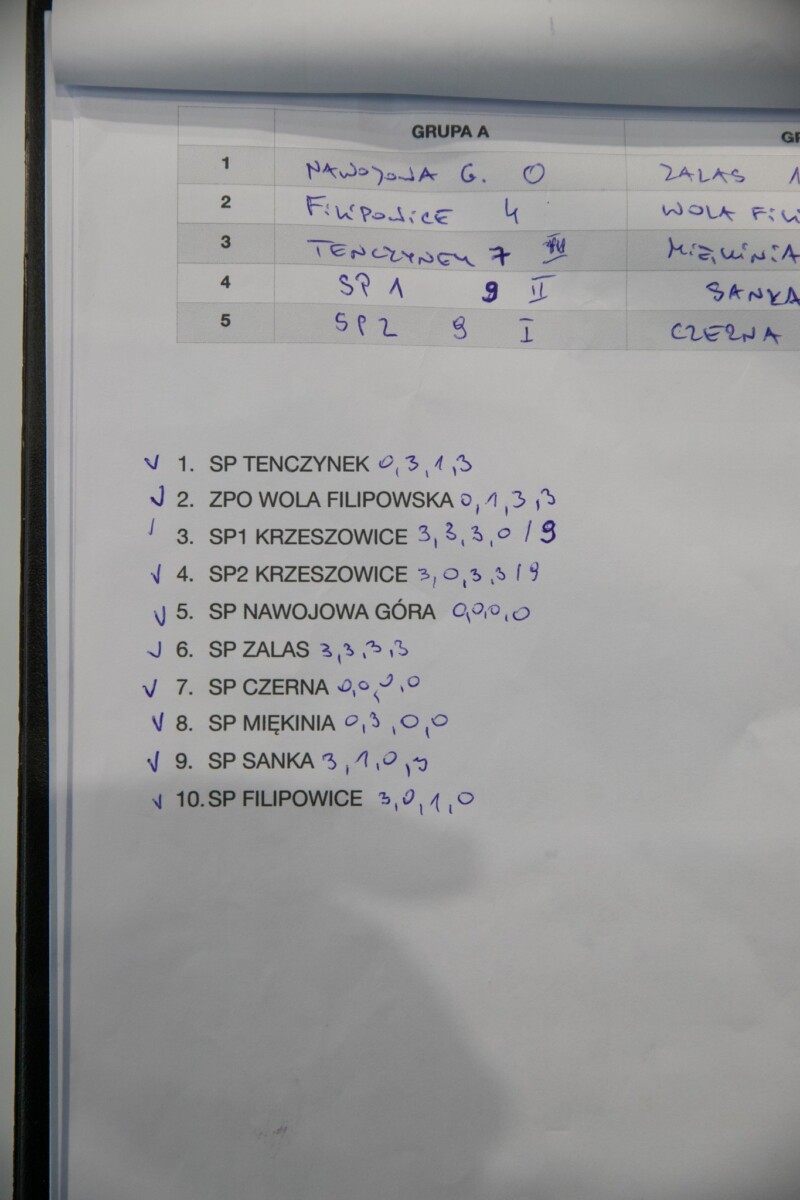 GRUPA A
1 NAWOJOWA G. 0 ZALAS 1
2 FILIPOWICE 4 WOLA FILI
3 TENCZYNEK 7 III MIĘKINIA
4 SP 1 9 II SANKA
5 SP 2 9 I CZERNA
1. SP TENCZYNEK 0,3,1,3
2. ZPO WOLA FILIPOWSKA 0,1,3,3
3. SP1 KRZESZOWICE 3,3,3,0 / 9
4. SP2 KRZESZOWICE 3,0,3,3 / 9
5. SP NAWOJOWA GÓRA 0,0,0,0
6. SP ZALAS 3,3,3,3
7. SP CZERNA 0,0,0,0
8. SP MIĘKINIA 0,3,0,0
9. SP SANKA 3,1,0,3
10. SP FILIPOWICE 3,0,1,0